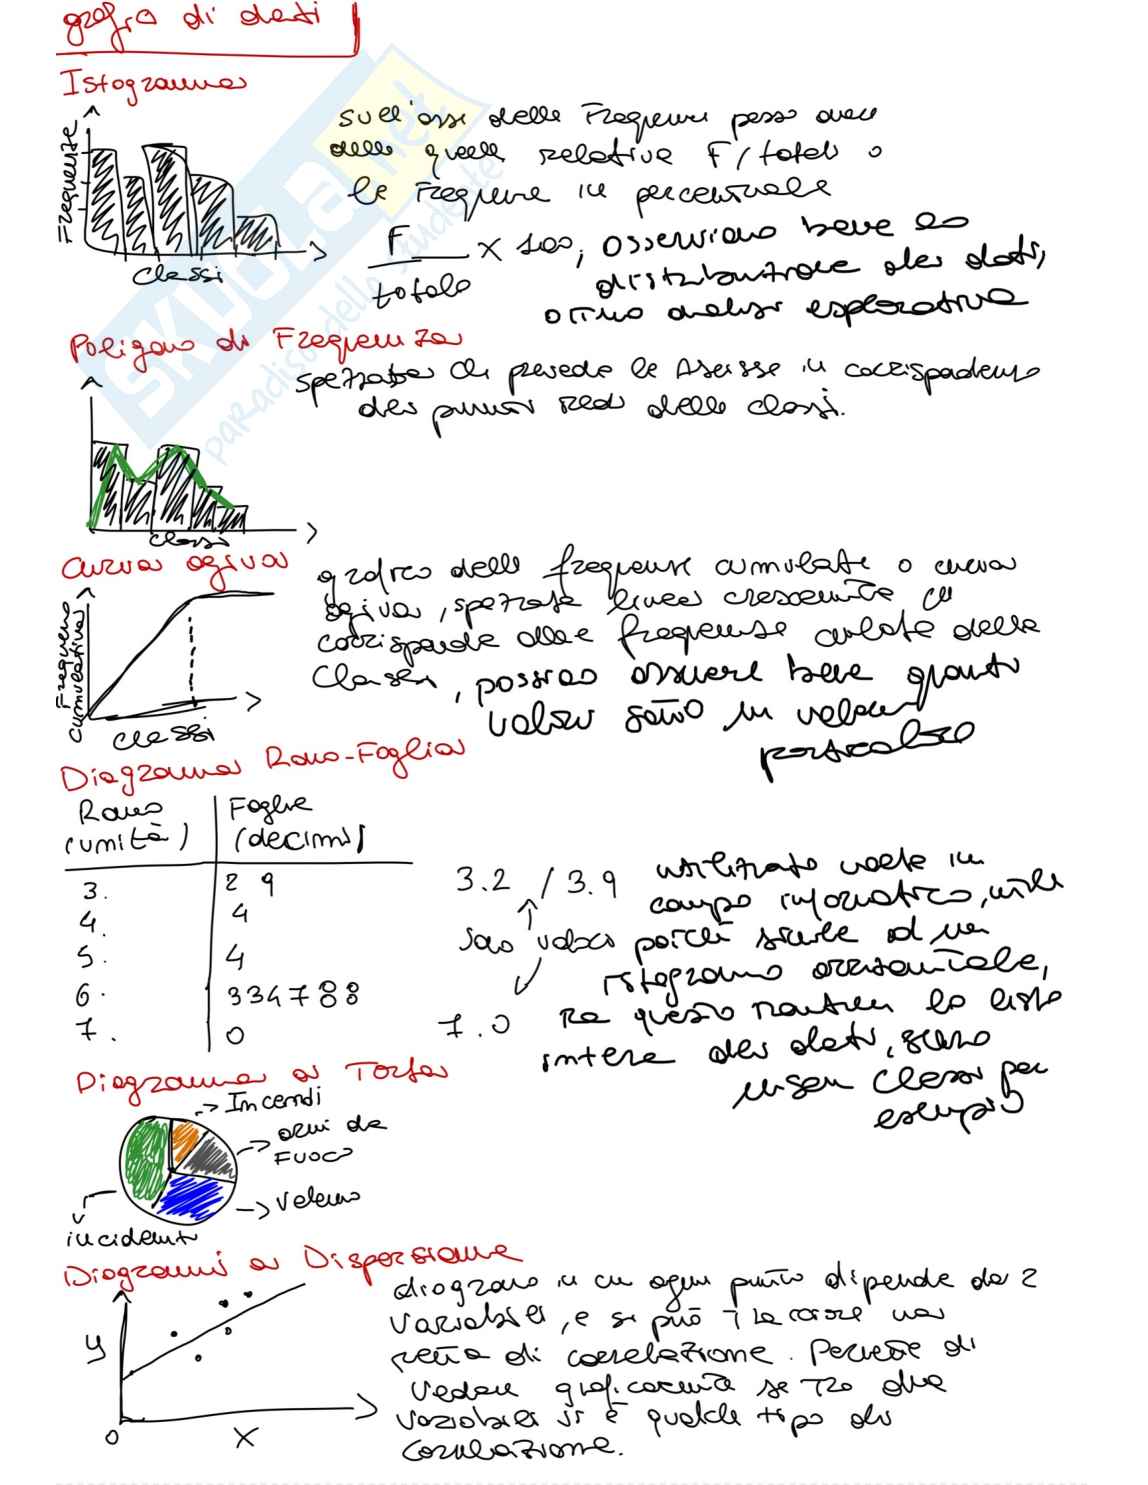 grafici di dati
Istogramma
Frequenze
Classi
sull'asse delle Frequenze posso avere
delle quelle relative F/totali o
le Frequenze in percentuale
F
totale
x 100, osserviamo bene la
distribuzione dei dati,
ottimo analisi esplorativa
Poligono di Frequenza
spezzata che prevede le Ascisse in corrispondenza
dei punti medi delle classi.
classi
Curva ogiva
grafico delle frequenze cumulate o curva
ogiva, spezzata linea crescente che
corrisponde alle frequenze delle
Classi, possiamo osservare bene quanti
valori sono in valore
particolare
Frequenza
cumulativa
classi
Diagramma Ramo-Foglia
Ramo
(unità)
Foglie
(decimi)
3. 2 9
4. 4
5. 4
6. 334788
7. 0
3.2 / 3.9
sono valori
7.0
utilizzato molte in
campo informatico, utile
poiché simile ad un
istogramma orizzontale,
ma questo mantiene la lista
intera dei dati, senza
classi per
esempio
Diagramma a Torta
Incendi
armi da
Fuoco
Veleno
incidenti
Diagrammi a Dispersione
y
0
X
diagramma in cui ogni punto dipende da 2
variabili, e si può tracciare una
retta di correlazione. Permette di
vedere graficamente se tra due
variabili vi è qualche tipo di
correlazione.
SKUOLA.net
paradiso dello studente